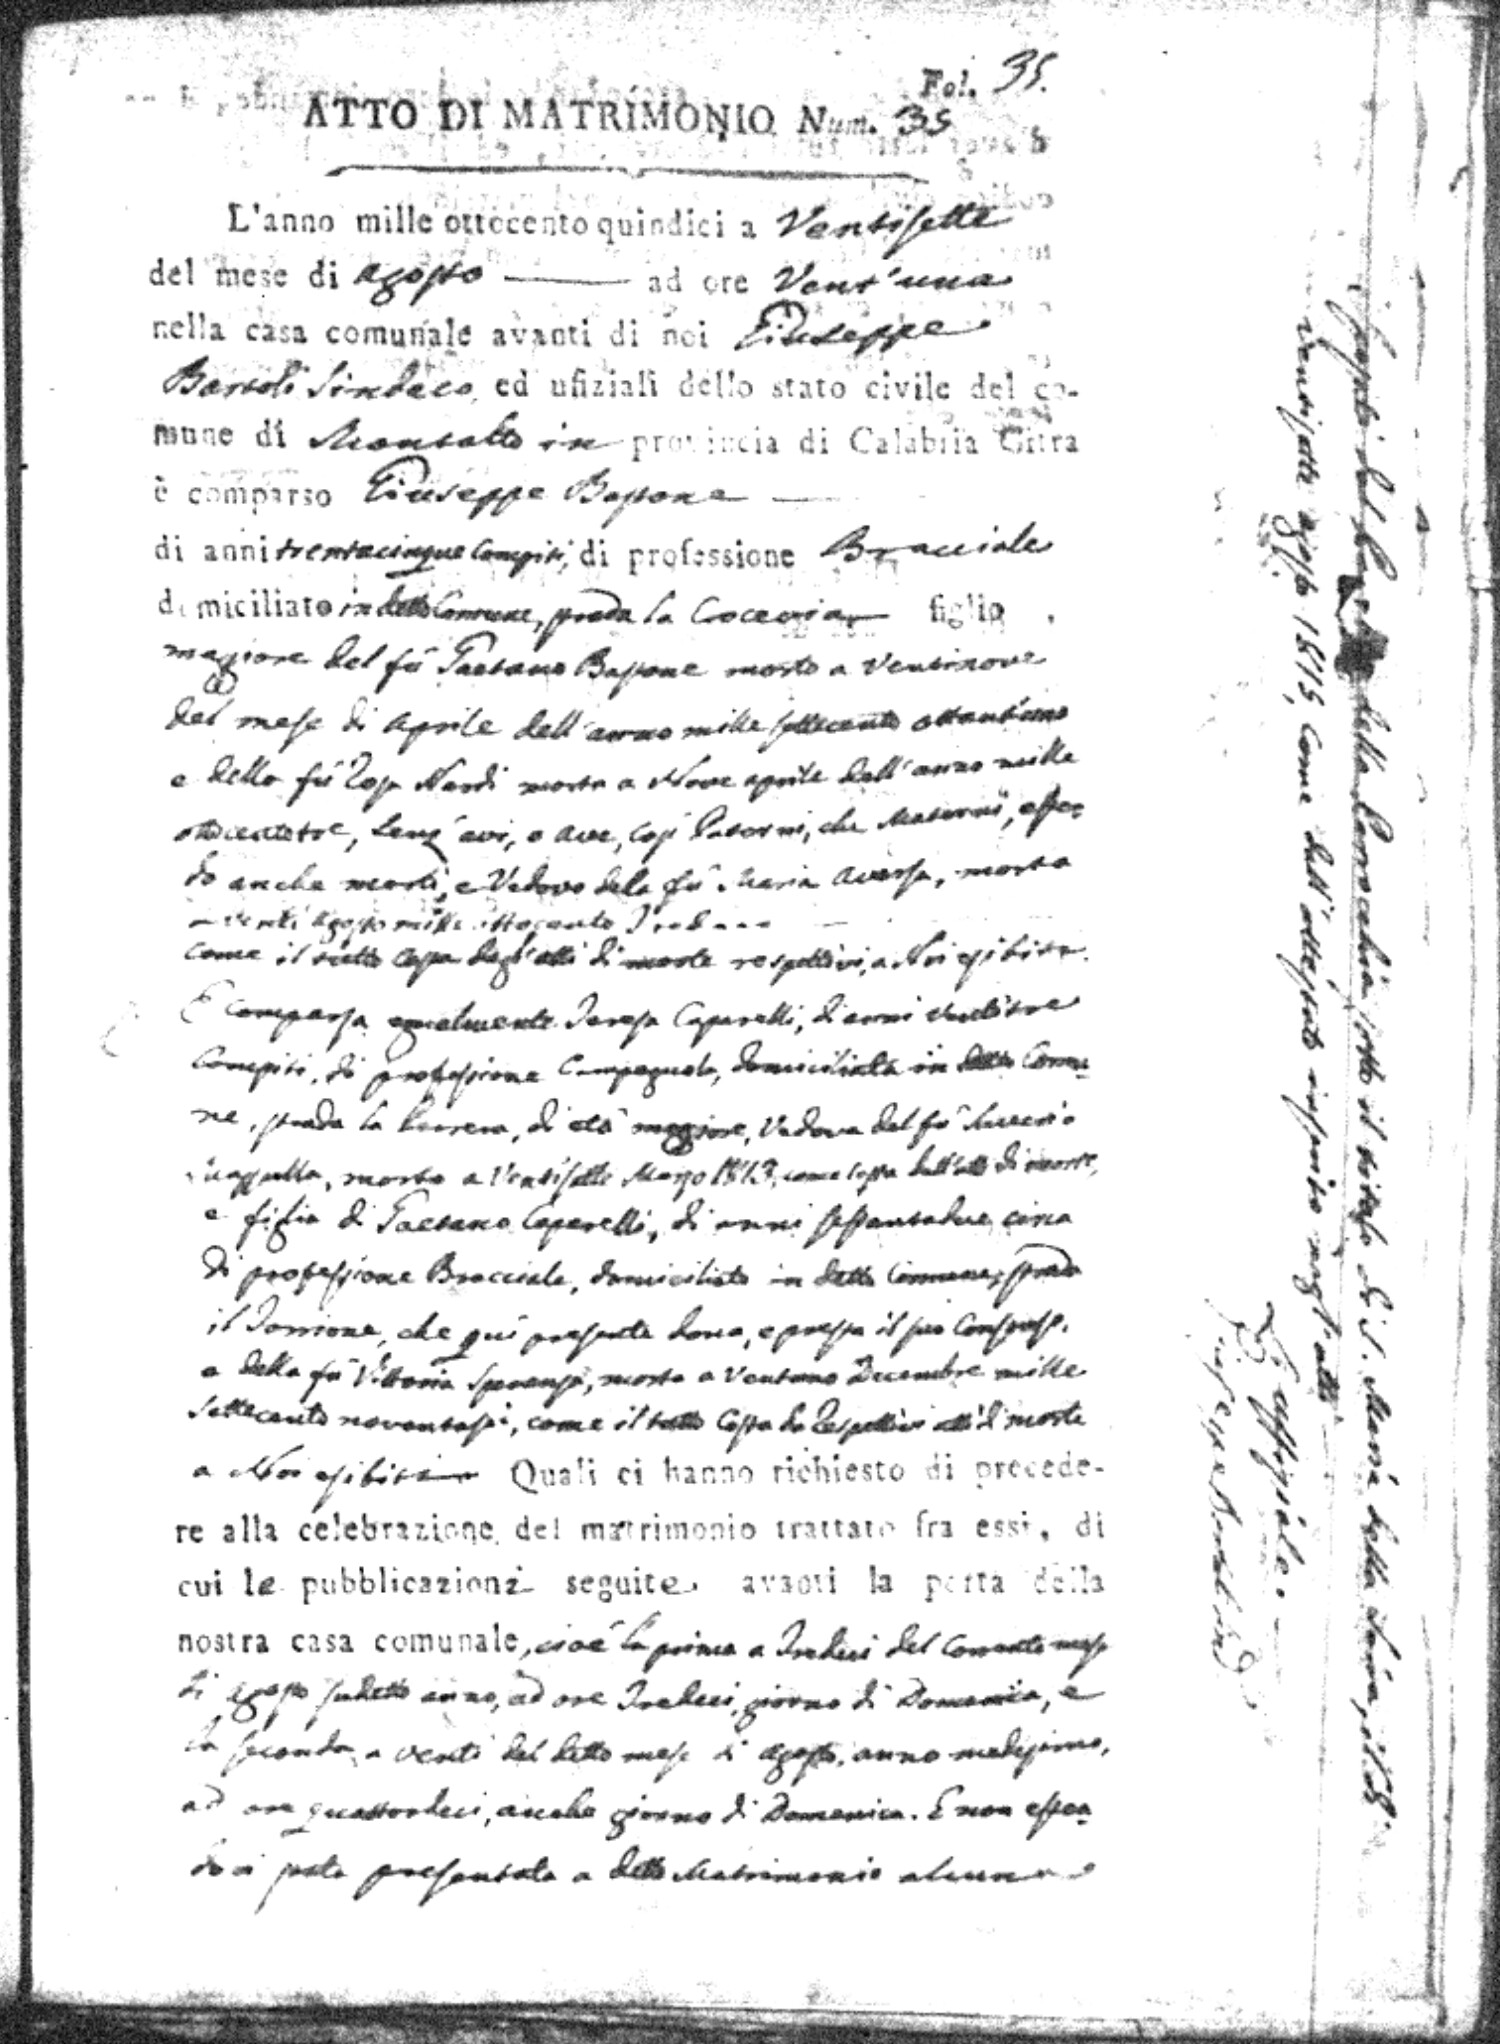 Fol. 35.
ATTO DI MATRIMONIO Num. 35
L'anno mille ottocento quindici a Ventisette
del mese di agosto ad ore Vent'una
nella casa comunale avanti di noi Giuseppe
Bartoli Sindaco ed ufiziali dello stato civile del co-
mune di Montalto in provincia di Calabria Citra
è comparso Giuseppe Bassone
di anni trentacinque compiti, di professione Bracciale
domiciliato in detto Comune, strada la Crocevia figlio
maggiore del fù Gaetano Bassone morto a ventinove
del mese di aprile dell'anno mille settecento ottant'uno
e della fù Rosa Nardi morta a Nove aprile dell'anno mille
ottocentotre, senz'avi, o ave, così Paterni, che Materni, essen-
do anche morti, e Vedovo dela fù Maria Aversa, morta
a venti agosto mille ottocento
come il tutto costa dagl'atti di morte respettivi, a Noi esibiti.
È comparsa egualmente Teresa Caparelli, di anni ventitre
compiti, di professione Campagnola, domiciliata in detto Comu-
ne, strada la, di età maggiore, Vedova del fù Saverio
morto a Ventisette Marzo 1813, come costa dall'atto di morte,
e figlia di Gaetano Caparelli, di anni sessantadue circa
di professione Bracciale, domiciliato in detto Comune, strada
il Torrione, che quì presente dona, e presta il suo Consenso,
e della fù Vittoria Speranza, morta a ventuno Decembre mille
settecento novantasei, come il tutto costa da respettivi atti di morte
a Noi esibiti Quali ci hanno richiesto di precede-
re alla celebrazione del matrimonio trattato fra essi, di
cui le pubblicazioni seguite avanti la porta della
nostra casa comunale, cioè la prima a Tredici del Corrente mese
di agosto sudetto anno, ad ore Tredici, giorno di Domenica, e
la seconda, a venti del detto mese di agosto, anno medesimo,
ad ore quattordici, anche giorno di Domenica. E non essen-
doci stata presentata a detto Matrimonio alcuna
della Parrocchia sotto il titolo di S. Maria della Serra, il dì
ventisette agosto 1815, come dall'attestato inserito negl'atti
L'uffiziale
Giuseppe Bartoli Sind.